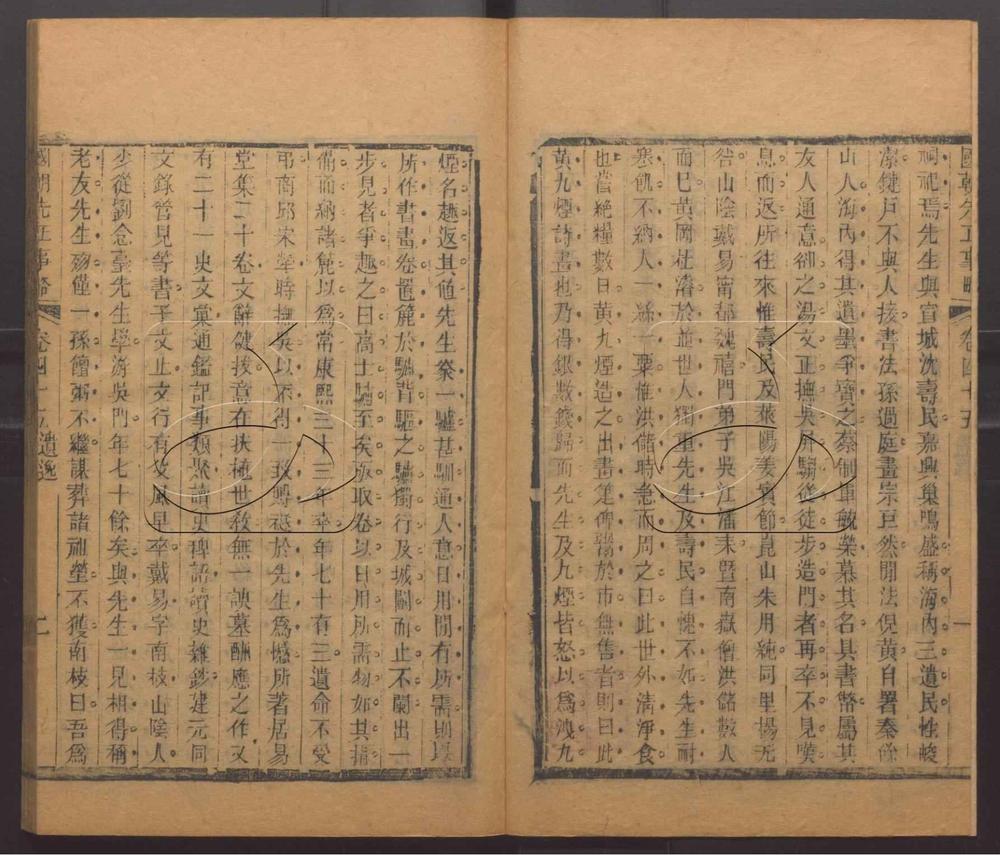 國朝先正事略 卷四十五 一
祠祀焉先生與宣城沈壽民嘉興巢鳴盛稱海內三遺民性峻
潔鍵戶不與人接書法孫過庭畫宗巨然間法倪黃自署秦餘
山人海內得其遺墨爭寶之蔡制軍毓榮慕其名具書幣屬其
友人通意卻之湯文正撫吳屏騶從徒步造門者再卒不見嘆
息而返所往來惟壽民及萊陽姜實節崑山朱用純同里揚无
咎山陰戴易甯都魏禧門弟子吳江潘耒曁南嶽僧洪儲數人
而已黃岡杜濬於並世人獨重先生及壽民自愧不如先生耐
寒飢不納人一絲一粟惟洪儲時急而周之曰此世外清淨食
也嘗絕糧數日黃九煙造之出書箑俾鬻於市無售者則曰此
黃九煙詩畫也乃得銀數錢歸而先生及九煙皆怒以爲洩九
煙名趣返其値先生豢一驢甚馴通人意日用閒有所需則以
所作書畫卷置簏於驢背驅之驢獨行及城闉而止不闌出一
步見者爭趣之曰高士驢至矣亟取卷以日用所需物如其指
備而納諸簏以爲常康熙三十三年卒年七十有三遺命不受
弔商邱宋犖時撫吳以不得一致賻襚於先生爲憾所著居易
堂集二十卷文辭健拔意在扶植世敎無一諛墓酬應之作又
有二十一史文彙通鑑記事類聚讀史稗語讀史雜鈔建元同
文錄管見等書子文止文行有父風早卒戴易字南枝山陰人
少從劉念臺先生學游吳門年七十餘矣與先生一見相得稱
老友先生歿僅一孫饘粥不繼謀葬諸祖塋不獲南枝曰吾爲
國朝先正事略 卷四十五 遺逸 二